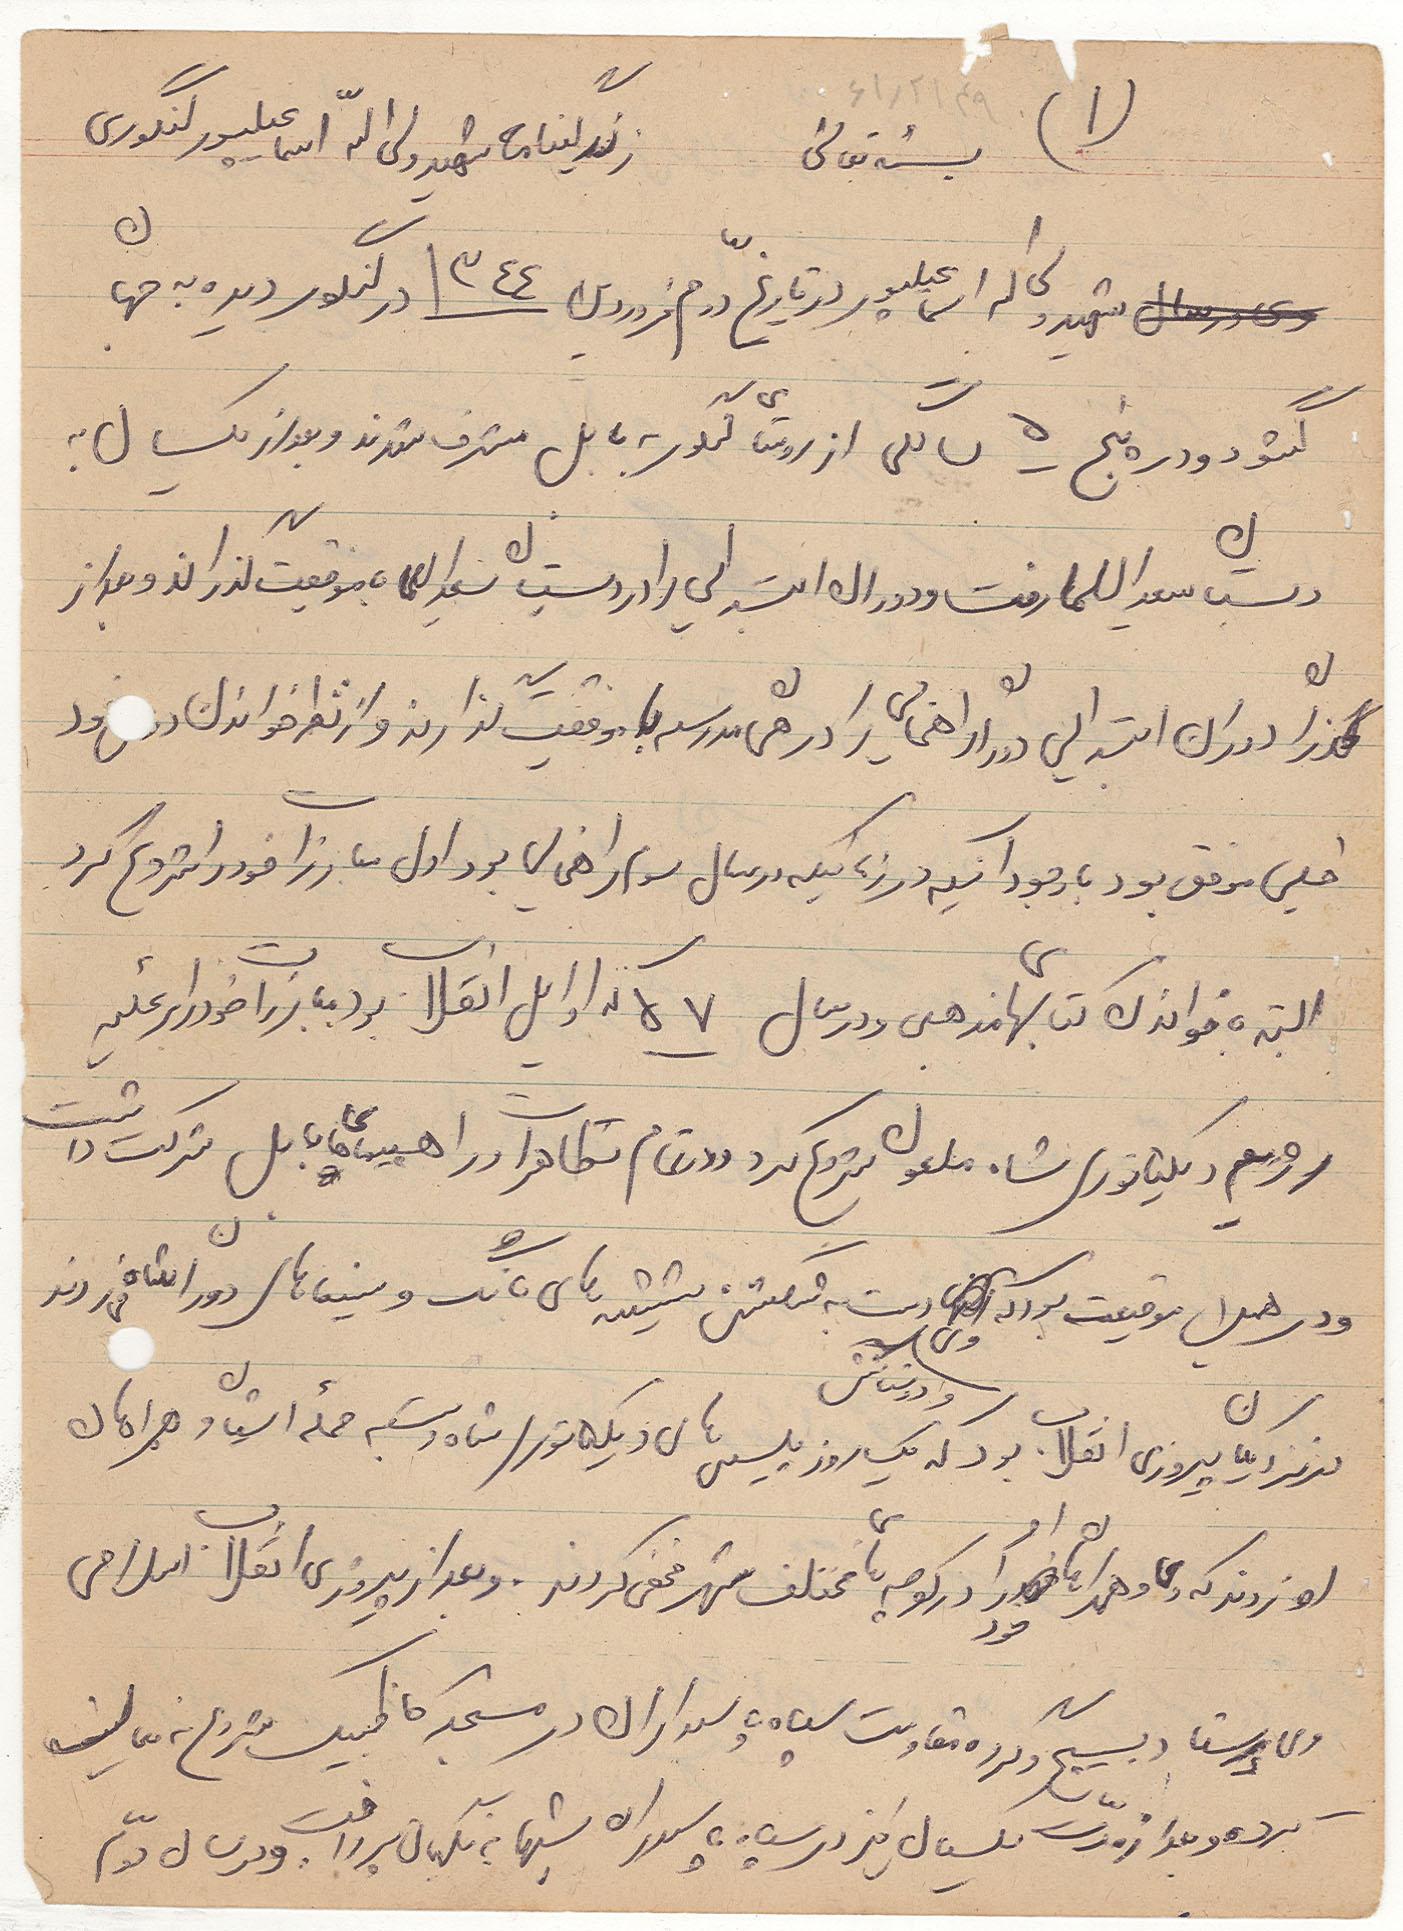 (۱)
بسمه تعالی
زندگینامه شهید ولی الله اسماعیلپور لنگوری
وی در سال شهید ولی اله اسماعیلپور در تاریخ دوّم فروردین ۱۳۴۴ در لنگور دیده به جهان
گشود و در پنج ۵ سالگی از روستای لنگور به بابل مشرف شدند و بعد از یکسال به
دبستان سعید العلما رفت و دوران ابتدایی را در دبستان سعید العلما با موفقیت گذراند و بعد از
گذراندن دوران ابتدایی دوران راهنمایی را در مدرسه با موفقیت گذراند و از نظر خواندن درس خود
خیلی موفق بود با وجود اینکه در زمانیکه در سال سوم راهنمایی بود اول مبارزات خود را شروع کرد
البته با خواندن کتابهای مذهبی و در سال ۵۷ که اوایل انقلاب بود مبارزات خود را بر علیه
رژیم دیکتاتوری شاه ملعون شروع کرد و در تمام تظاهرات و راهپیمایی های بابل شرکت داشت
و در همین موقعیت بود که وی و دوستانش دست به شکستن شیشه های بانک و سینماهای دوران شاه میزدند
نزدیکیهای پیروزی انقلاب بود که یک روز پلیس های دیکتاتوری شاه دست به حمله ایشان و همراهان
او زدند که وی و همراهان خود را در کوچه های مختلف شهر مخفی کردند. و بعد از پیروزی انقلاب اسلامی
وی در ستاد بسیج و گروه مقاومت سپاه پاسداران در مسجد کاظمبیک شروع به فعالیت
کرده و بعد از مدّت یکسال نیز در سپاه پاسداران شبها به نگهبانی پرداخت و در سال دوّم